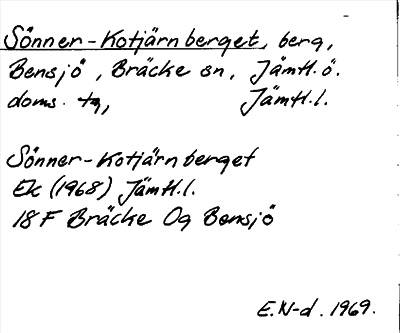 Sönner-Kotjärnberget, berg,
Bensjö, Bräcke sn, Jämtl. ö.
doms. tg, Jämtl. l.
Sönner-Kotjärnberget
Ek (1968) Jämtl. l.
18 F Bräcke Og Bensjö
E. N-d. 1969.